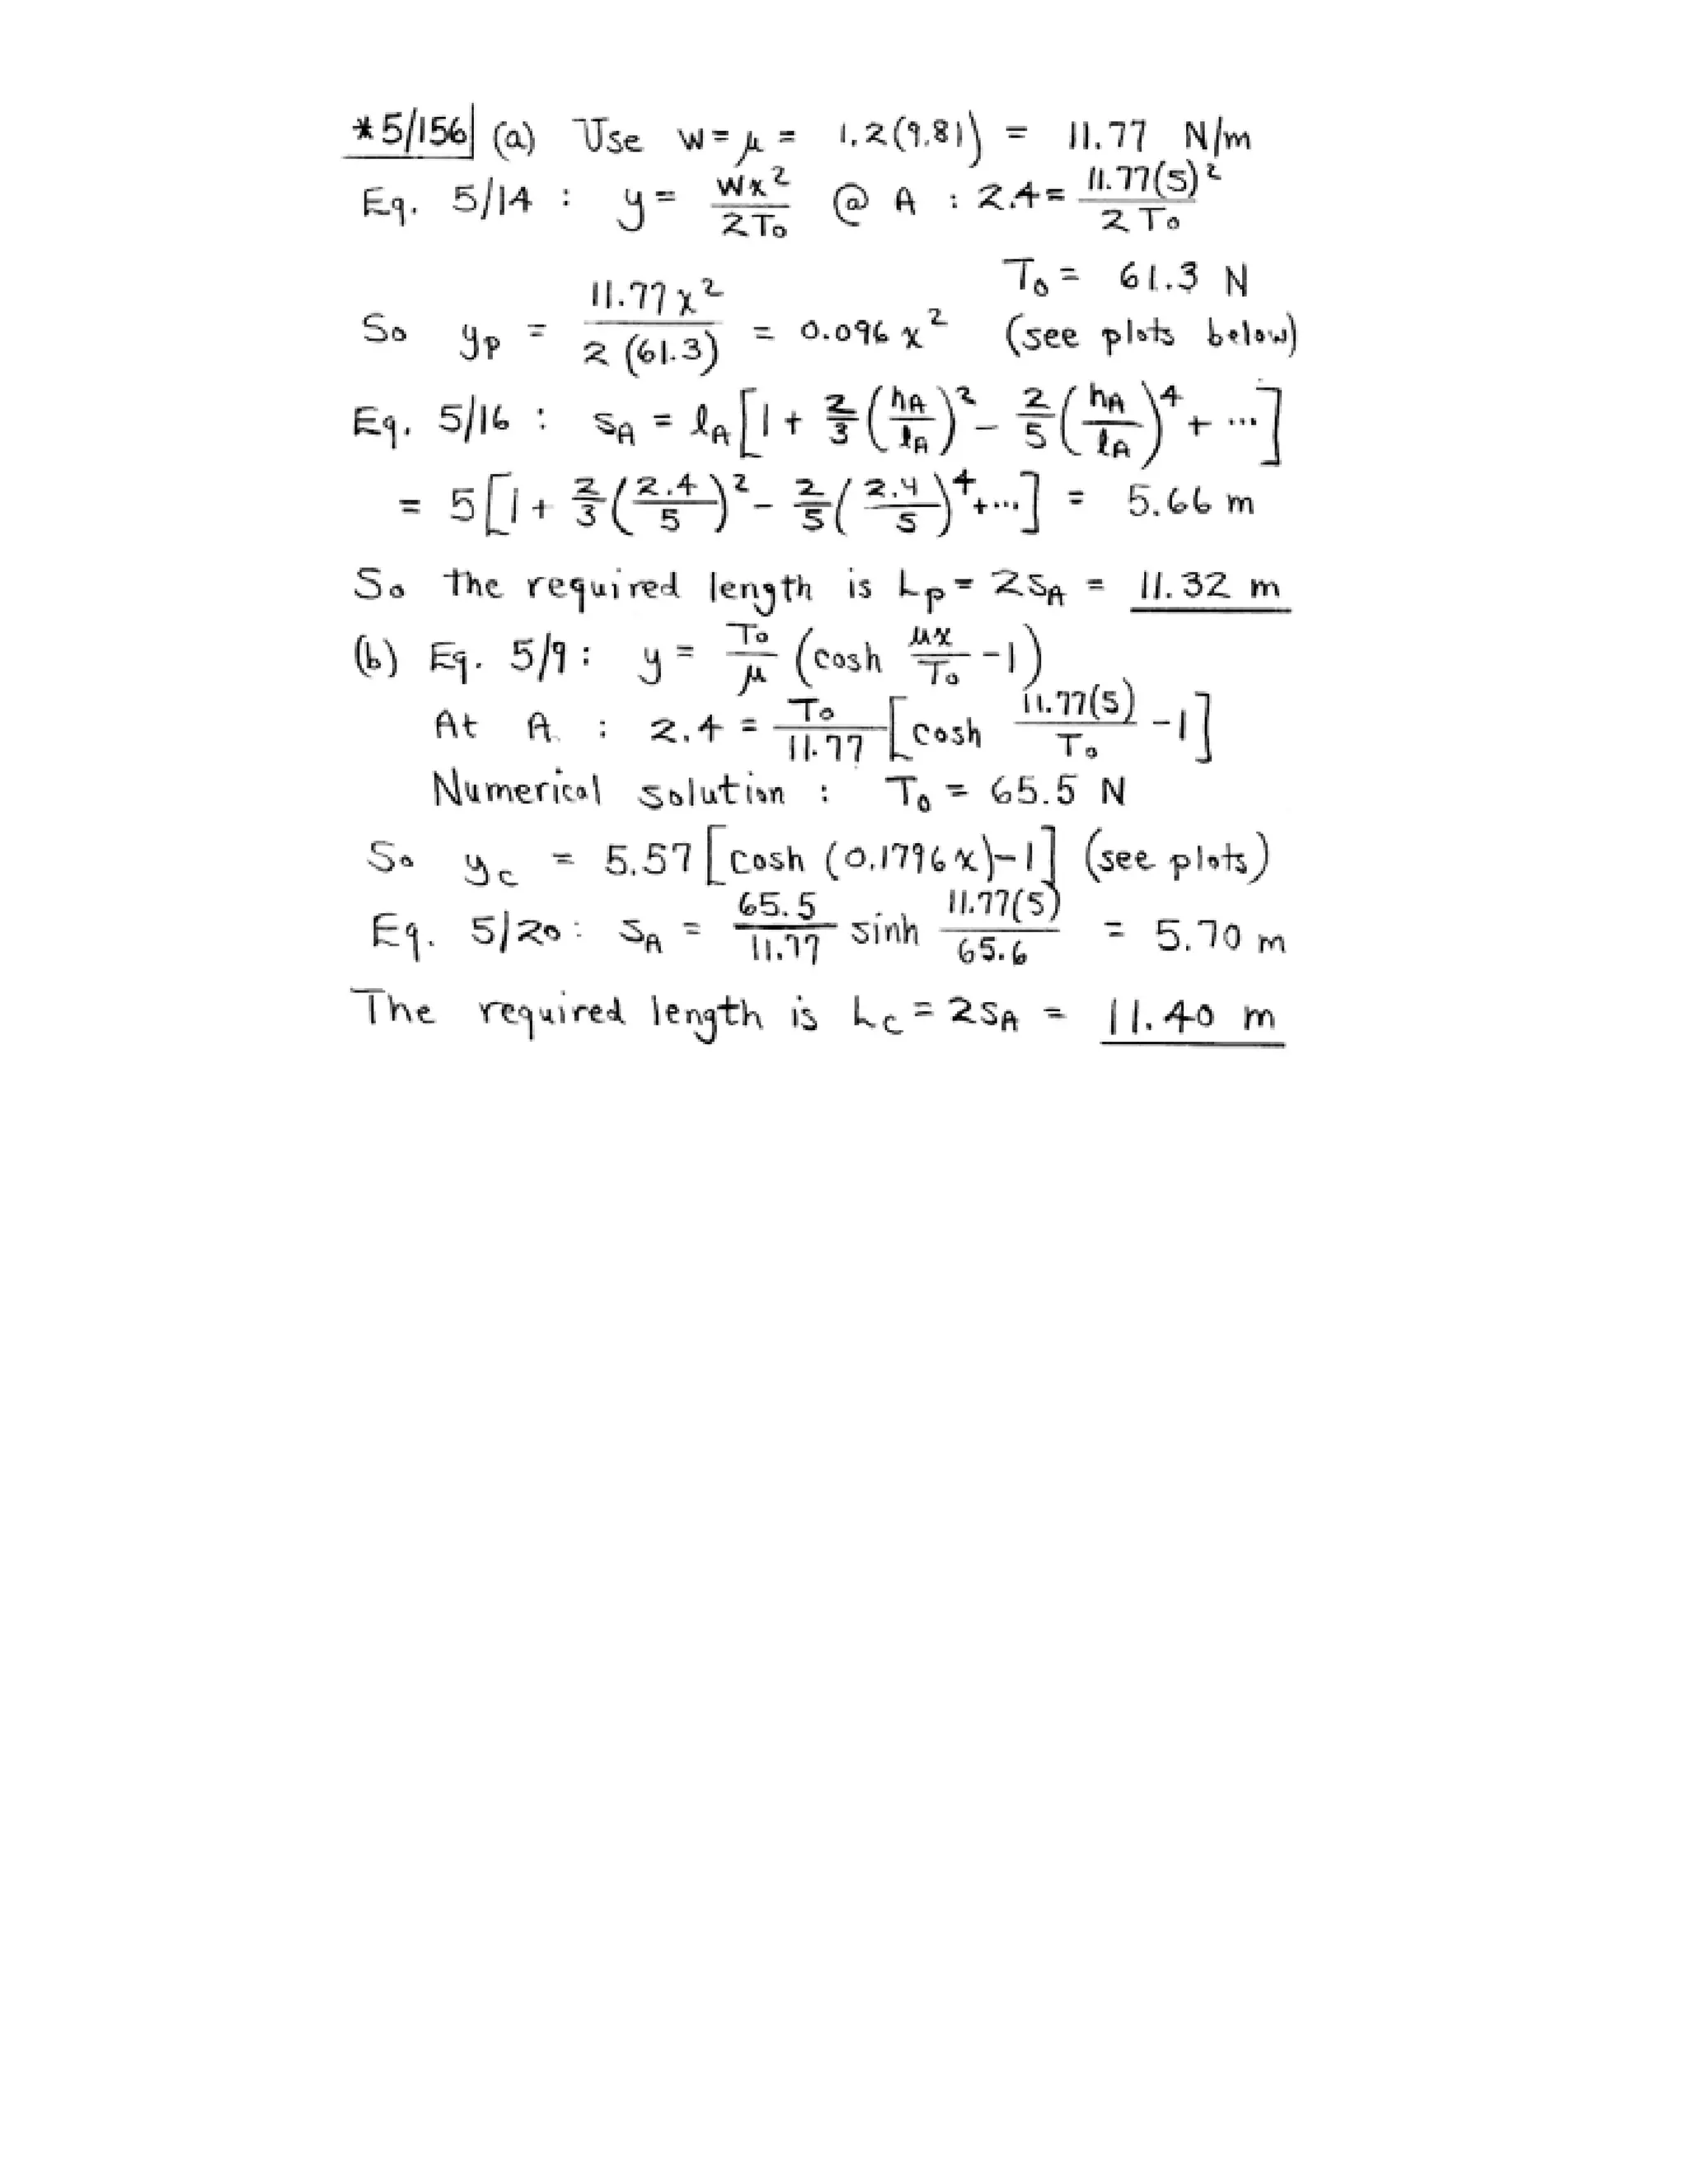 *5/156 (a) Use w = μ = 1.2(9.81) = 11.77 N/m
Eq. 5/14 : y = wx²/2T₀ @ A : 2.4 = 11.77(5)²/2T₀
T₀ = 61.3 N
So yₚ = 11.77x²/2(61.3) = 0.096x² (see plots below)
Eq. 5/16 : s_A = l_A[1 + 2/3(h_A/l_A)² - 2/5(h_A/l_A)⁴ + ...]
= 5[1 + 2/3(2.4/5)² - 2/5(2.4/5)⁴ + ...] = 5.66 m
So the required length is L_p = 2s_A = 11.32 m
(b) Eq. 5/9 : y = T₀/μ (cosh μx/T₀ - 1)
At A : 2.4 = T₀/11.77 [cosh 11.77(5)/T₀ - 1]
Numerical solution : T₀ = 65.5 N
So y_c = 5.57[cosh (0.1796x)-1] (see plots)
Eq. 5/20 : s_A = 65.5/11.77 sinh 11.77(5)/65.6 = 5.70 m
The required length is L_c = 2s_A = 11.40 m